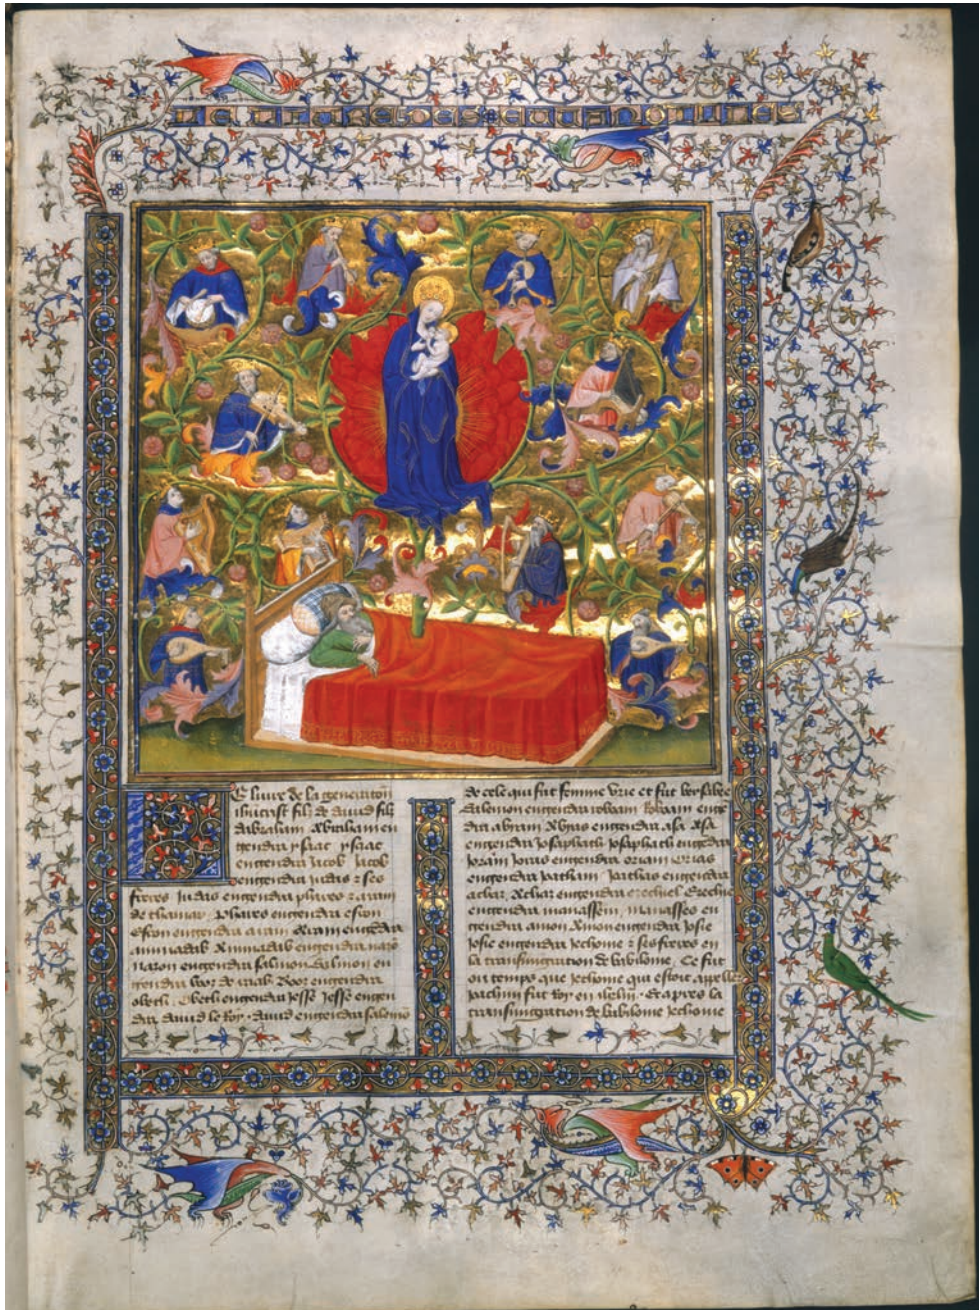 223
LE LIURE DES EUUANGILLES
Le liure de la generation
ihucrist filz de dauid filz
dabraham Abraham en
gendra ysaac ysaac
engendra Jacob Jacob
engendra iudas z ses
freres Judas engendra phares z aram
de thamar. Phares engendra esron
Esron engendra aram Aram engendra
aminadab Aminadab engendra naso
nason engendra salmon Salmon en
gendra booz de raab Booz engendra
obeth. Obeth engendra Jesse Jesse engen
dra dauid le Roy. dauid engendra salomo
de cele qui fut femme Vrie et fut bersabee
Salemon engendra roboam Roboam enge
dra abyam Abyas engendra asa Asa
engendra Josaphath Josaphath engedra
Joram Joras engendra oziam Ozias
engendra Joatham Joathas engendra
achaz Achaz engendra ezechiel Ezechie
engendra manassem. Manasses en
gendra amon Amon engendra Josie
Josie engendra Jechonie z ses freres en
la transmigration de babilonie. Ce fut
ou temps que Jechonie qui estoit appelle
Joachim fut Roy en ihrlm. Et apres la
transmigration de babilonie Jechonie